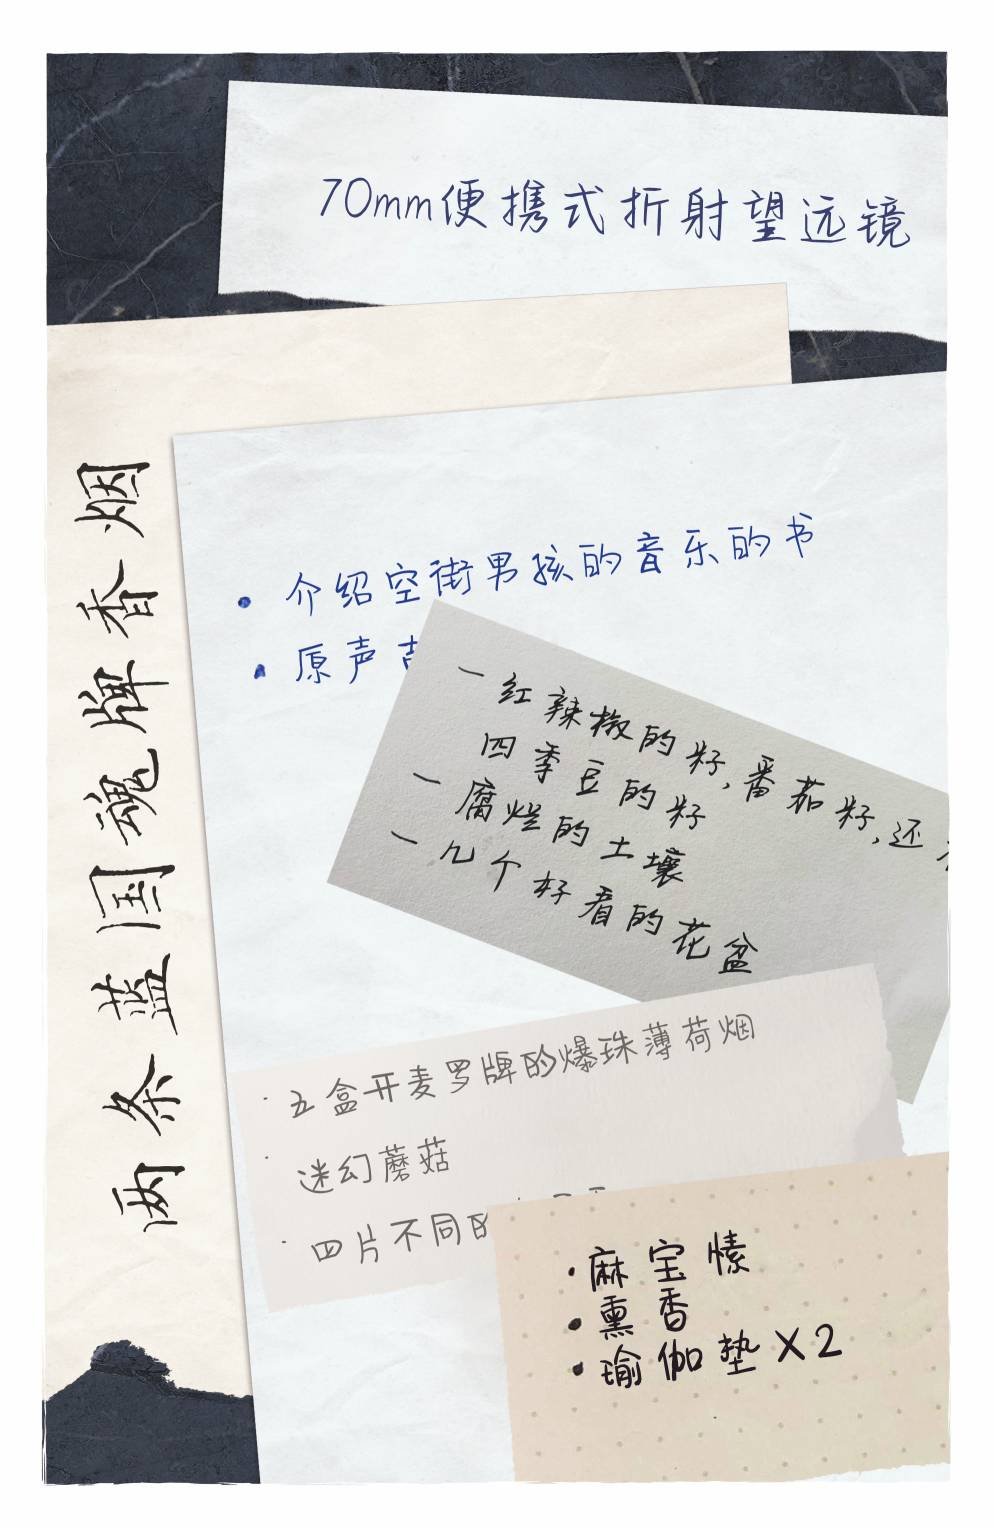 70mm便携式折射望远镜
两条蓝国魂牌香烟
• 介绍空街男孩的音乐的书
• 原声
一 红辣椒的籽,番茄籽,还
四季豆的籽
一 腐烂的土壤
一 几个好看的花盆
· 五盒开麦罗牌的爆珠薄荷烟
· 迷幻蘑菇
· 四片不同的
· 麻宝愫
· 熏香
· 瑜伽垫 X2